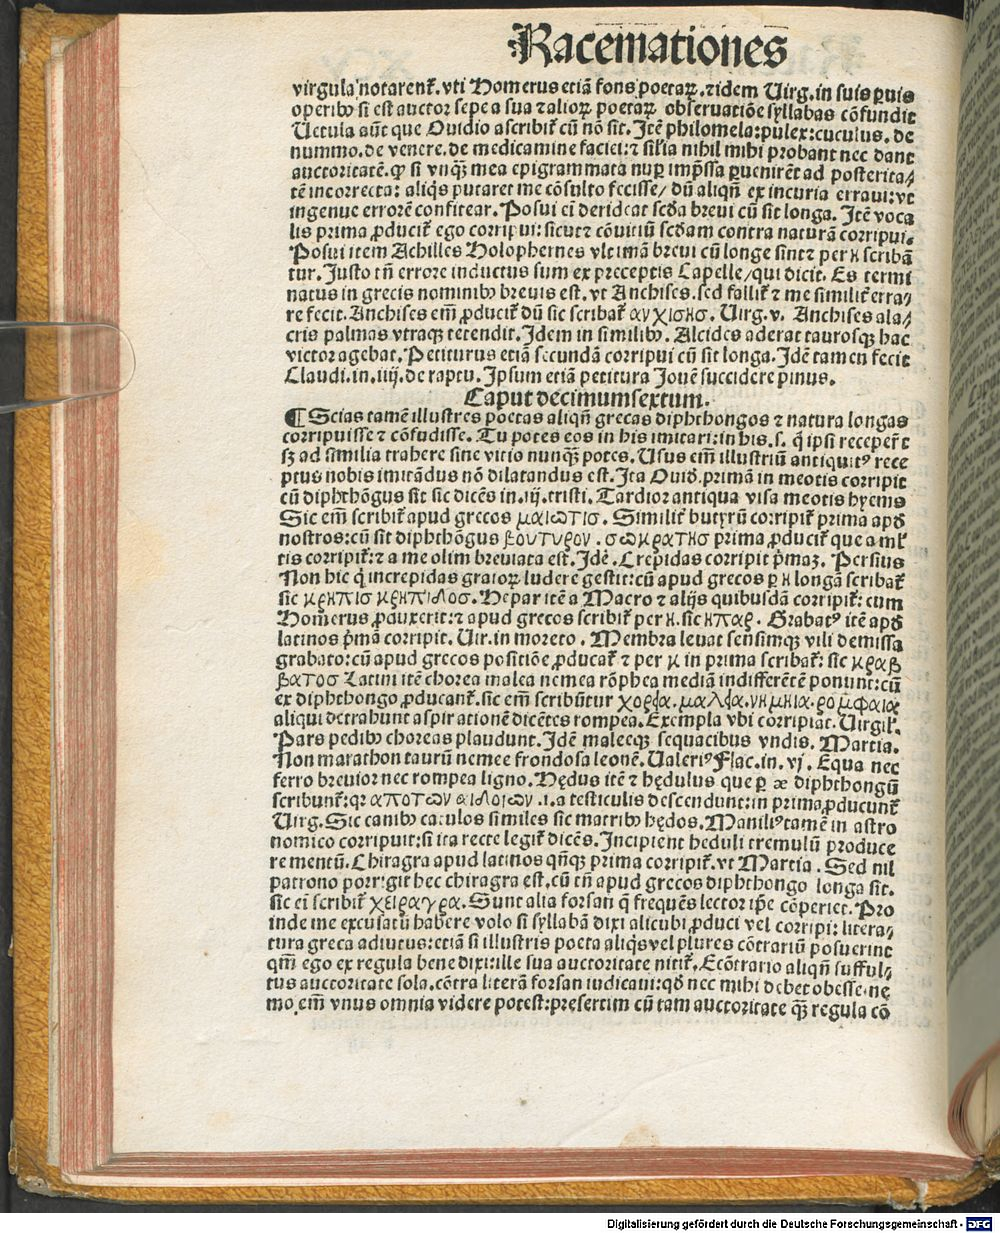 Racemationes
virgula notarent᷑. vti Homerus etiã fons poetaꝝ. ⁊ idem Virg. in suis ꝑuis
operibꝰ si est auctor sepe a sua ⁊ alioꝝ poetaꝝ obseruatiõe syllabas cõfundit
Vetula aũt que Ouidio ascribit᷑ cũ nõ sit. Itẽ philomela: pulex: cuculus. de
nummo. de venere. de medicamine faciei: ⁊ sil̃ia nihil mihi probant nec dant
auctoritatẽ. ꝙ si vnqꝫ mea epigrammata nuꝑ imp̃ssa ꝑuenirẽt ad posterita/
tẽ incorrecta: aliq̃s putaret me cõsulto fecisse/ dũ aliqñ ex incuria erraui: vt
ingenue errorẽ confitear. Posui ei derideat scd̃a breui cũ sit longa. Itẽ voca
lis prima ꝓducit᷑ ego corripui: sicut ⁊ cõuitiũ scd̃am contra naturã corripui.
Posui item Achilles Holophernes vltimã breui cũ longe sint ⁊ per η scribã
tur. Justo tñ errore inductus sum ex preceptis Capelle/ qui dicit. Es termi
natus in grecis nominibꝰ breuis est. vt Anchises. sed fallit᷑ ⁊ me similit᷑ erra/
re fecit. Anchises em̃ ꝓducit᷑ dũ sic scribat᷑ αγχισης. Virg. v. Anchises ala/
cris palmas vtrasqꝫ tetendit. Idem in similibꝰ. Alcides aderat taurosqꝫ hac
victor agebat. Petiturus etiã secundã corripui cũ sit longa. Idẽ tamen fecit
Claudi. in. iiij. de raptu. Ipsum etiã petitura Jouẽ succidere pinus.
Caput decimumsextum.
¶ Scias tamẽ illustres poetas aliqñ grecas diphthongos ⁊ natura longas
corripuisse ⁊ cõfudisse. Tu potes eos in his imitari: in his. s. q̃ ipsi receper̃t
sꝫ ad similia trahere sine vitio nunqꝫ potes. Usus em̃ illustriũ antiquitꝰ rece
ptus nobis imitãdus nõ dilatandus est. Ita Ouid. primã in meotis corripit
cũ diphthõgus sit sic dicẽs in. iij. tristi. Tardior antiqua visa meotis hyems
Sic em̃ scribit᷑ apud grecos μαιωτισ. Similit᷑ butyrũ corripit᷑ prima apd̃
nostros: cũ sit diphthõgus βουτυρον. σωκρατησ prima ꝓducit᷑ que a ml̃
tis corripit᷑: ⁊ a me olim breuiata est. Idẽ. Crepidas corripit p̃maꝫ. Persius
Non hic q̃ in crepidas graioꝝ ludere gestit: cũ apud grecos ꝑ η longã scribat᷑
sic κρηπισ κρηπιδοσ. Hepar itẽ a Macro ⁊ alijs quibusdã corripit᷑: cum
Homerus ꝓduxerit: ⁊ apud grecos scribit᷑ per η. sic ηπαρ. Grabatꝰ itẽ apd̃
latinos p̃mã corripit. Vir. in moreto. Membra leuat sensimqꝫ vili demissa
grabato: cũ apud grecos positiõe ꝓducat᷑ ⁊ per κ in prima scribat᷑: sic κραβ
βατοσ Latini itẽ chorea malea nemea rõphea mediã indifferẽtẽ ponunt: cũ
ex diphthongo ꝓducant᷑. sic em̃ scribũtur χορεια. μαλεια. νημηια. ρομφαια
aliqui detrahunt aspirationẽ dicẽtes rompea. Exempla vbi corripiat. Virgil.
Pars pedibꝰ choreas plaudunt. Idẽ maleeqꝫ sequacibus vndis. Martia.
Non marathon taurũ nemee frondosa leonẽ. Ualeriꝰ Flac. in. vj. Equa nec
ferro breuior nec rompea ligno. Hędus itẽ ⁊ hędulus que ꝑ æ diphthongũ
scribunt᷑: qꝛ αποτων αιδοιων .i. a testiculis descendunt: in prima ꝓducunt᷑
Virg. Sic canibꝰ catulos similes sic matribꝰ hędos. Maniliꝰ tamẽ in astro
nomico corripuit: si ita recte legit᷑ dicẽs. Incipient heduli tremulũ produce
re mentũ. Chiragra apud latinos qñqꝫ prima corripit᷑. vt Martia. Sed nil
patrono porrigit hec chiragra est. cũ tñ apud grecos diphthongo longa sit.
sic ei scribit᷑ χειραγρα. Sunt alia forsan q̃ frequẽs lector ip̃e cõperiet. Pro
inde me excusatũ habere volo si syllabã dixi alicubi ꝓduci vel corripi: litera/
tura greca adiutus: etiã si illustris poeta aliq̃s vel plures cõtrariũ posuerint
qm̃ ego ex regula bene dixi: ille sua auctoritate nitit᷑. Ecõtrario aliqñ sufful/
tus auctoritate sola. cõtra literã forsan iudicaui: qd̃ nec mihi debet obesse. nę
mo. em̃ vnus omnia videre potest: presertim cũ tam auctoritate qꝫ regula cõ
Digitalisierung gefördert durch die Deutsche Forschungsgemeinschaft - DFG